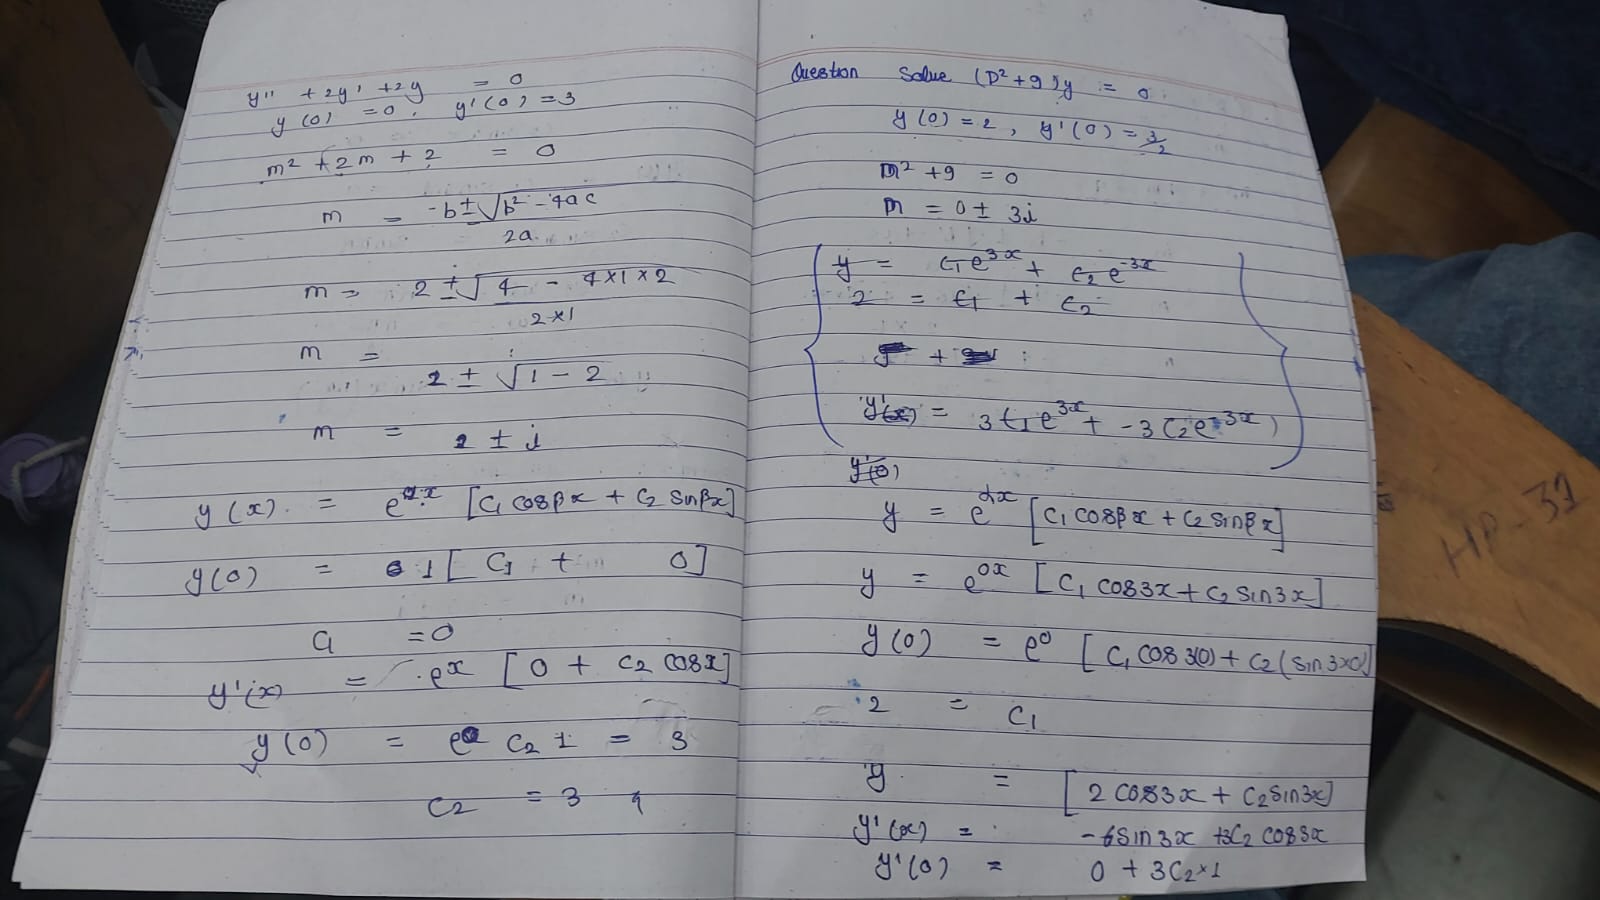 y'' + 2y' + 2y = 0
y(0) = 0, y'(0) = 3
m² + 2m + 2 = 0
m = -b ± √b² - 4ac
2a
m = 2 ± √4 - 4×1×2
2×1
m =
2 ± √1 - 2
m = 2 ± i
y(x) = e [C₁ cosβx + C₂ sinβx]
y(0) = 1 [C₁ + 0]
C₁ = 0
y'(x) = eˣ [0 + C₂ cosx]
y(0) = e C₂ 1 = 3
C₂ = 3
Question Solve (D² + 9)y = 0
y(0) = 2, y'(0) = 3/2
m² + 9 = 0
m = 0 ± 3i
y = C₁e³ˣ + C₂e⁻³ˣ
2 = C₁ + C₂
+
y'(x) = 3C₁e³ˣ + -3C₂e⁻³ˣ
y'(0)
y = e^αx [C₁ cosβx + C₂ sinβx]
y = e^0x [C₁ cos3x + C₂ sin3x]
y(0) = e⁰ [C₁ cos3(0) + C₂(sin3×0)]
2 = C₁
y = [2 cos3x + C₂ sin3x]
y'(x) = -6sin3x + 3C₂ cos3x
y'(0) = 0 + 3C₂×1
HP-31